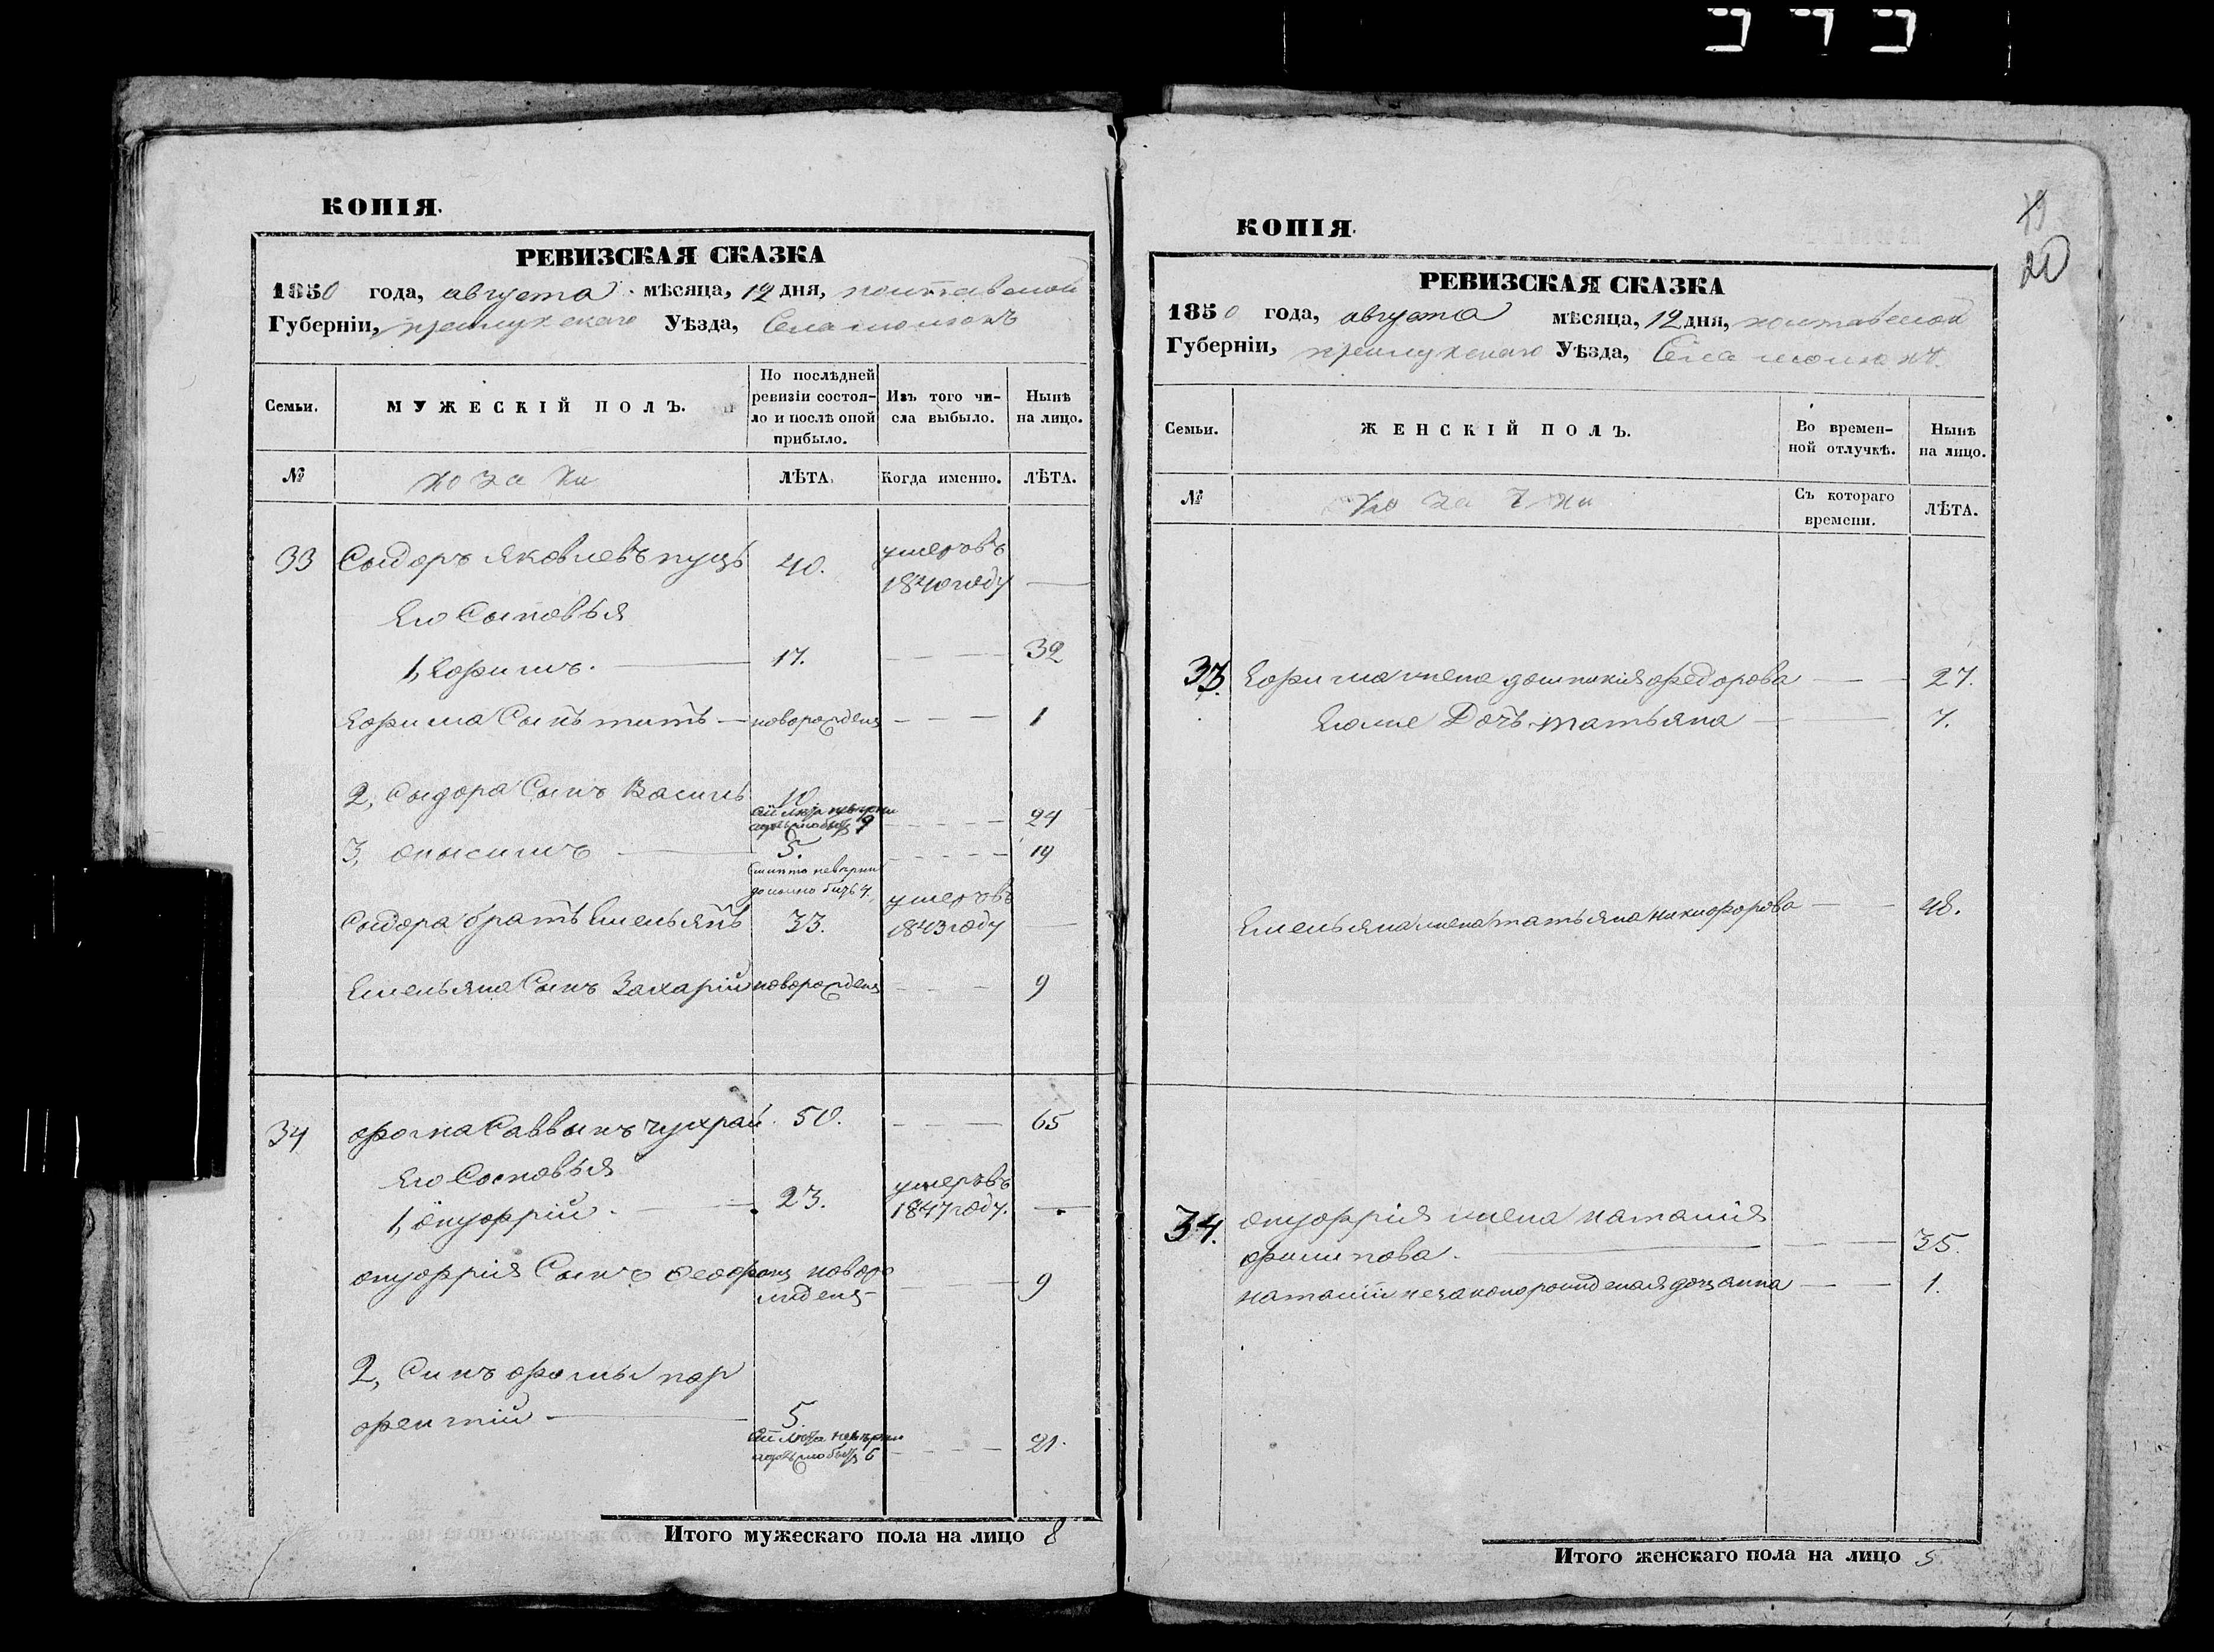 КОПІЯ.
РЕВИЗСКАЯ СКАЗКА
1850 года, августа мѣсяца, 12 дня, полтавской
Губерніи, прилукскаго Уѣзда, Села
Семьи.
МУЖЕСКІЙ ПОЛЪ.
По послѣдней ревизіи состояло и послѣ оной прибыло.
Изъ того числа выбыло.
Ныне на лицо.
№
козаки
ЛѢТА.
Когда именно.
ЛѢТА.
33 Сыдоръ яковлевъ пуць 40. умеръ въ 1840 году —
Его Сыновья
1, Ефимъ. 17. 32
Ефима Сынъ титъ — новорожденъ 1
2, Сыдора Сынъ Василь 10 сіи лѣта невѣрни 9 24
3, онысимъ 5. невѣрни должно бить 4, 19
Сыдора братъ Емельянъ 33. умеръ въ 1843 году —
Емельяна Сынъ Захарій новорожденъ 9
34 фома Саввынъ чухрай 50. 65
Его Сыновья
1, онуфрій. 23. умеръ въ 1847 году. —
онуфрія Сынъ Феофанъ новорожденъ 9
2, Синъ фомы пар
фентій — 5. сіи лѣта невѣрни 6 21.
Итого мужескаго пола на лицо 8
КОПІЯ.
19
20
РЕВИЗСКАЯ СКАЗКА
1850 года, августа мѣсяца, 12 дня, полтавской
Губерніи, прилукскаго Уѣзда, Села
Семьи.
ЖЕНСКІЙ ПОЛЪ.
Во временной отлучкѣ.
Нынѣ на лицо.
№
козачки
Съ котораго времени.
ЛѢТА.
33. Ефима жена домникія федорова 27.
Его же Дочь татьяна 7.
Емельяна жена татьяна никифорова 48.
34. онуфрія жена наталія
филипова. 35.
наталіи незаконорожденая дочь анна 1.
Итого женскаго пола на лицо 5